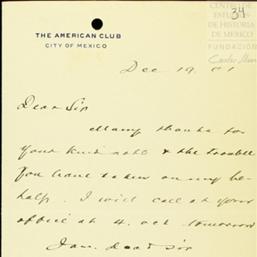 34
CENTRO DE
ESTUDIOS
DE HISTORIA
DE MEXICO
FUNDACIÓN
THE AMERICAN CLUB
CITY OF MEXICO
Dec 19. 01
Dear Sir
Many thanks for
your kind note & the trouble
you have taken on my be-
half. I will call at your
office at 4. tomorrow
I am. Dear Sir